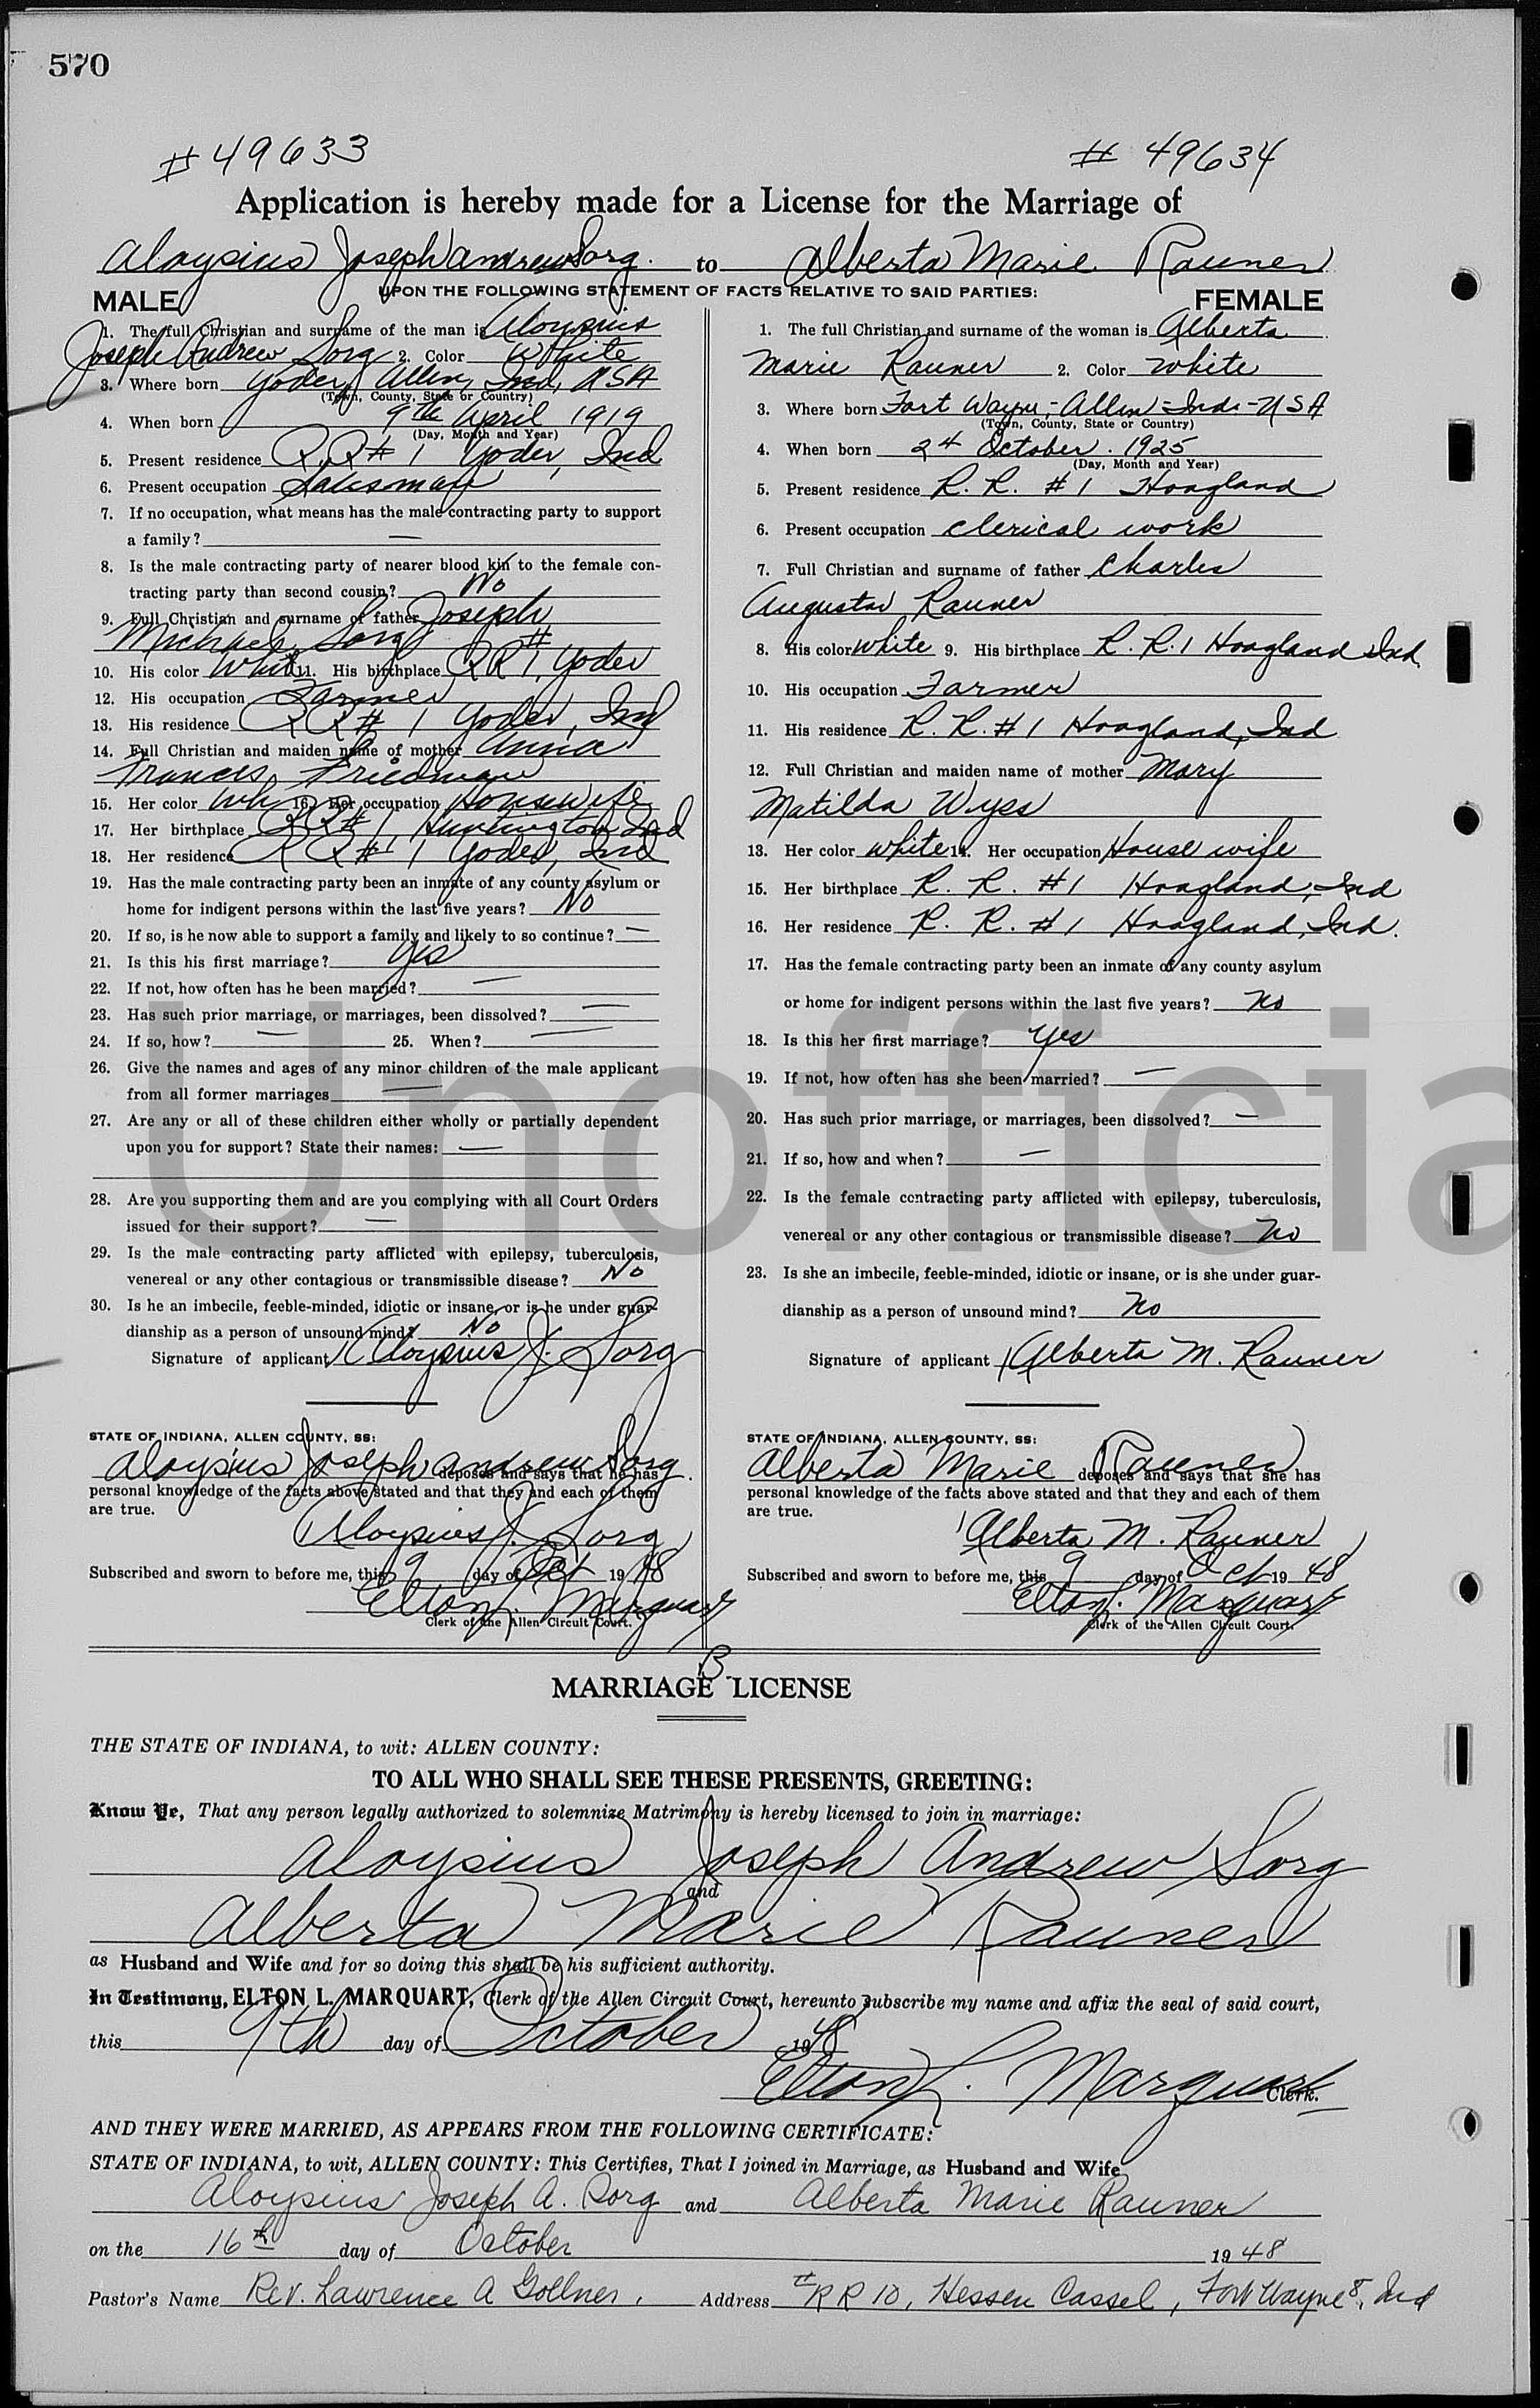 570
#49633 # 49634
Application is hereby made for a License for the Marriage of
Aloysius Joseph Andrew Sorg. to Alberta Marie Rauner
UPON THE FOLLOWING STATEMENT OF FACTS RELATIVE TO SAID PARTIES:
MALE
1. The full Christian and surname of the man is Aloysius
Joseph Andrew Sorg 2. Color White
3. Where born Yoder, Allen, Ind, USA
(Town, County, State or Country)
4. When born 9th April 1919
(Day, Month and Year)
5. Present residence R.R # 1 Yoder, Ind
6. Present occupation Salesman
7. If no occupation, what means has the male contracting party to support
a family? —
8. Is the male contracting party of nearer blood kin to the female con-
tracting party than second cousin? No
9. Full Christian and surname of father Joseph
Michael Sorg
10. His color White 11. His birthplace RR #1, Yoder
12. His occupation Farmer
13. His residence RR # 1 Yoder, Ind
14. Full Christian and maiden name of mother Anna
Frances Friedman
15. Her color Wh 16. Her occupation Housewife
17. Her birthplace RR # 1, Huntington Ind
18. Her residence RR # 1 Yoder, Ind
19. Has the male contracting party been an inmate of any county asylum or
home for indigent persons within the last five years? No
20. If so, is he now able to support a family and likely to so continue? —
21. Is this his first marriage? Yes
22. If not, how often has he been married? —
23. Has such prior marriage, or marriages, been dissolved? —
24. If so, how? — 25. When? —
26. Give the names and ages of any minor children of the male applicant
from all former marriages —
27. Are any or all of these children either wholly or partially dependent
upon you for support? State their names: —
28. Are you supporting them and are you complying with all Court Orders
issued for their support? —
29. Is the male contracting party afflicted with epilepsy, tuberculosis,
venereal or any other contagious or transmissible disease? No
30. Is he an imbecile, feeble-minded, idiotic or insane, or is he under guar-
dianship as a person of unsound mind? No
Signature of applicant Aloysius J. Sorg
STATE OF INDIANA, ALLEN COUNTY, SS:
Aloysius Joseph Andrew Sorg deposes and says that he has
personal knowledge of the facts above stated and that they and each of them
are true.
Aloysius J. Sorg
Subscribed and sworn to before me, this 9 day of Oct 1948
Elton L. Marquart
Clerk of the Allen Circuit Court.
FEMALE
1. The full Christian and surname of the woman is Alberta
Marie Rauner 2. Color White
3. Where born Fort Wayne, - Allen - Ind. - USA
(Town, County, State or Country)
4. When born 24 October. 1925
(Day, Month and Year)
5. Present residence R. R. #1 Hoagland
6. Present occupation clerical work
7. Full Christian and surname of father Charles
Augustav Rauner
8. His color White 9. His birthplace R. R. 1 Hoagland Ind.
10. His occupation Farmer
11. His residence R. R. #1 Hoagland, Ind
12. Full Christian and maiden name of mother Mary
Matilda Wyss
13. Her color White 14. Her occupation House wife
15. Her birthplace R. R. #1 Hoagland, Ind
16. Her residence R. R. #1 Hoagland, Ind.
17. Has the female contracting party been an inmate of any county asylum
or home for indigent persons within the last five years? No
18. Is this her first marriage? Yes
19. If not, how often has she been married? —
20. Has such prior marriage, or marriages, been dissolved? —
21. If so, how and when? —
22. Is the female contracting party afflicted with epilepsy, tuberculosis,
venereal or any other contagious or transmissible disease? No
23. Is she an imbecile, feeble-minded, idiotic or insane, or is she under guar-
dianship as a person of unsound mind? No
Signature of applicant Alberta M. Rauner
STATE OF INDIANA, ALLEN COUNTY, SS:
Alberta Marie Rauner deposes and says that she has
personal knowledge of the facts above stated and that they and each of them
are true.
Alberta M. Rauner
Subscribed and sworn to before me, this 9 day of Oct 1948
Elton L. Marquart
Clerk of the Allen Circuit Court.
Unofficia
B.
MARRIAGE LICENSE
THE STATE OF INDIANA, to wit: ALLEN COUNTY:
TO ALL WHO SHALL SEE THESE PRESENTS, GREETING:
Know Ye, That any person legally authorized to solemnize Matrimony is hereby licensed to join in marriage:
Aloysius Joseph Andrew Sorg
and
Alberta Marie Rauner
as Husband and Wife and for so doing this shall be his sufficient authority.
In Testimony, ELTON L. MARQUART, Clerk of the Allen Circuit Court, hereunto subscribe my name and affix the seal of said court,
this 9th day of October 1948
Elton L. Marquart Clerk.
AND THEY WERE MARRIED, AS APPEARS FROM THE FOLLOWING CERTIFICATE:
STATE OF INDIANA, to wit, ALLEN COUNTY: This Certifies, That I joined in Marriage, as Husband and Wife
Aloysius Joseph A. Sorg and Alberta Marie Rauner
on the 16th day of October 1948
Pastor's Name Rev. Lawrence A Gollner, Address #RR 10, Hessen Cassel, Fort Wayne 8, Ind